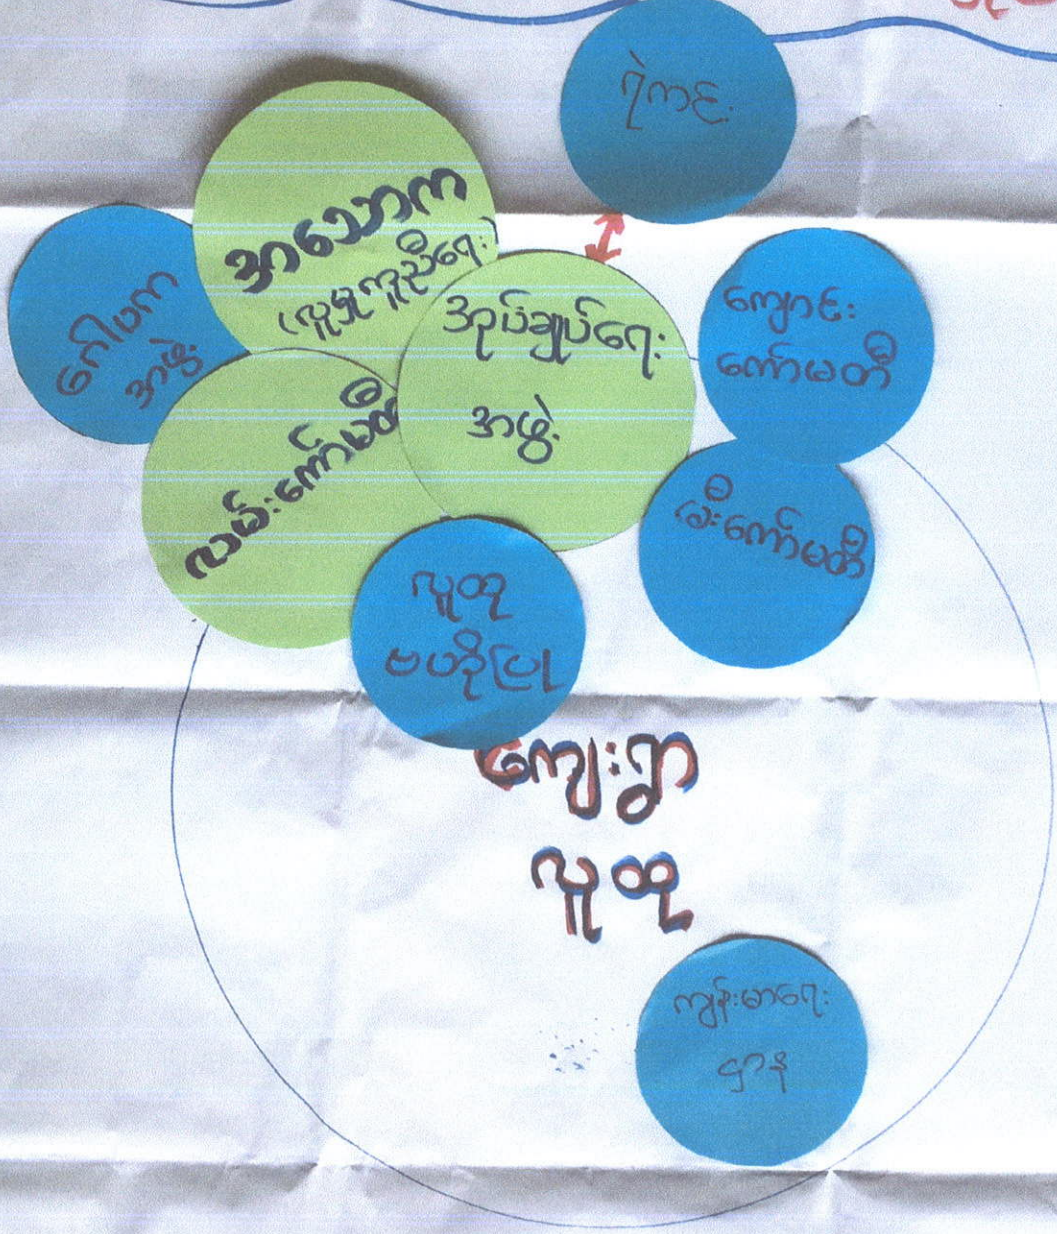 ရဲကင်း
အသောက
(လူမှုကူညီရေး)
ဂေါပက
အဖွဲ့
အုပ်ချုပ်ရေး
အဖွဲ့
ကျောင်း
ကော်မတီ
လမ်းကော်မတီ
မီးကော်မတီ
လူထု
ဗဟိုပြု
ကျေးရွာ
လူထု
ကျန်းမာရေး
ဌာန